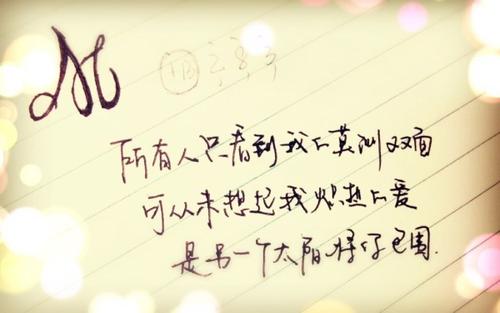 M
所有人只看到我的莫测双面
可从未想起我炽热的爱
是另一个太阳将你包围.